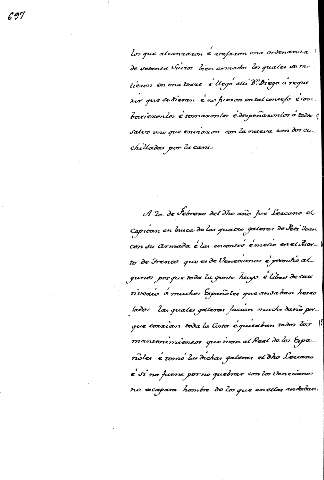 697
los que alcanzaron é
de setenta Turcos bien armados los quales se me
tieron en una torre é llegó alli Dn. Diego á reque
rir que se diesen é no fueron en tal consejo é com
batieronlos é tomaronlos é despedazaronlos á todos
salvo uno que enviaron con la nueva con dos cu
chilladas por la cara.
A 20 de Febrero del dho año fué Lezcano el
Capitan en busca de las quatro galeras de
con su Armada é las encontró é metió en el Puer
to de que es de Venecianos é prendió al
gunos porque toda la gente huyó é libró de cau
tiverio á muchos Españoles que andaban herro
lados las quales galeras facian mucho daño por
que corrian toda la Costa é quitaban todos los
mantenimientos que iban al Real de los Espa
ñoles é tomó las dichas galeras el dho Lezcano
é si no fuera por no quebrar con los Venecianos
no escapara hombre de los que en ellas andaban.